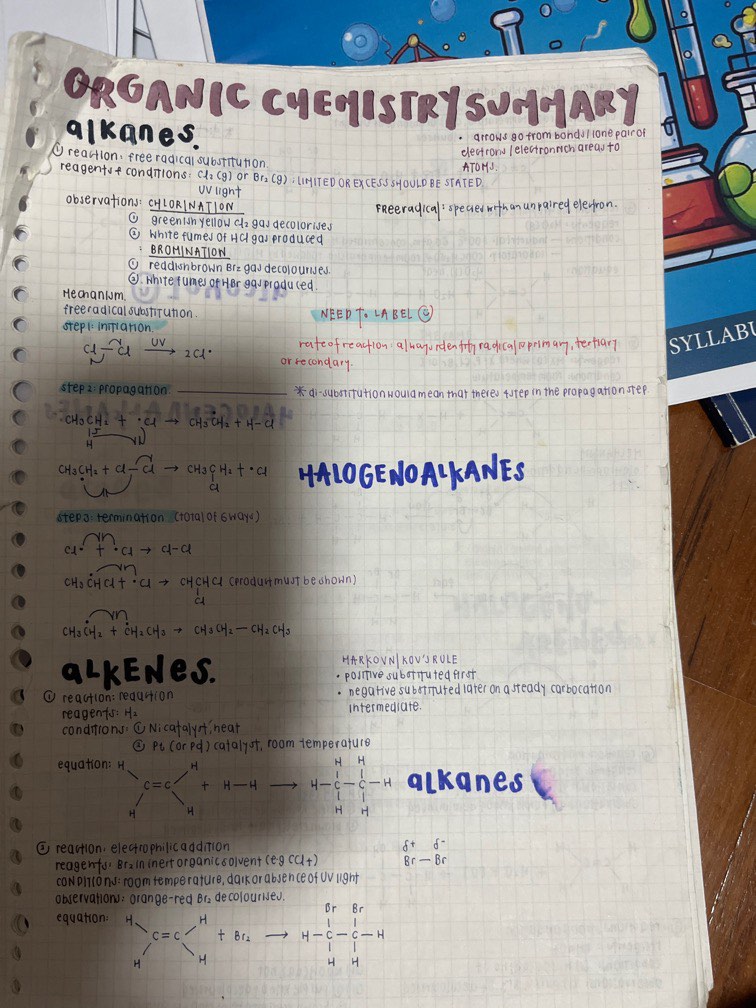 ORGANIC CHEMISTRY SUMMARY
alkanes.
• arrows go from bonds/lone pair of
electrons/electron rich areas to
ATOMS.
① reaction: free radical substitution.
reagents & conditions: Cl₂(g) or Br₂(g). LIMITED OR EXCESS SHOULD BE STATED
UV light
observations: CHLORINATION
Free radical: species with an unpaired electron.
① greenish yellow Cl₂ gas decolorises
② white fumes of HCl gas produced
: BROMINATION
① reddish brown Br₂ gas decolourises.
②. white fumes of HBr gas produced.
Mechanism.
free radical substitution.
NEED TO LABEL
step 1: initiation.
rate of reaction: always identify radical as primary, tertiary
or secondary.
Cl—Cl UV→ 2Cl•
step 2: propagation
* di-substitution would mean that theres 4 step in the propagation step.
CH₃CH₂ + •Cl → CH₃ĊH₂ + H-Cl
H
CH₃ĊH₂ + Cl—Cl → CH₃CH₂ + •Cl
Cl
HALOGENOALKANES
step 3: termination (total of 6 ways)
Cl• + •Cl → Cl-Cl
CH₃ĊHCl + •Cl → CHCHCl (product must be shown)
Cl
CH₃ĊH₂ + ĊH₂CH₃ → CH₃CH₂—CH₂CH₃
alKENES.
MARKOVNIKOV'S RULE
• positive substituted first
• negative substituted later on a steady carbocation
intermediate.
① reaction: reduction
reagents: H₂
conditions: ① Ni catalyst, heat
② Pt (or Pd) catalyst, room temperature
equation: H H H H
C=C + H—H → H—C—C—H
H H H H
alkanes
② reaction: electrophilic addition
δ+ δ-
reagents: Br₂ in inert organic solvent (eg CCl4)
Br—Br
CONDITIONS: room temperature, dark or absence of UV light
observations: orange-red Br₂ decolourises.
equation: H H Br Br
C=C + Br₂ → H—C—C—H
H H H H
SYLLABU